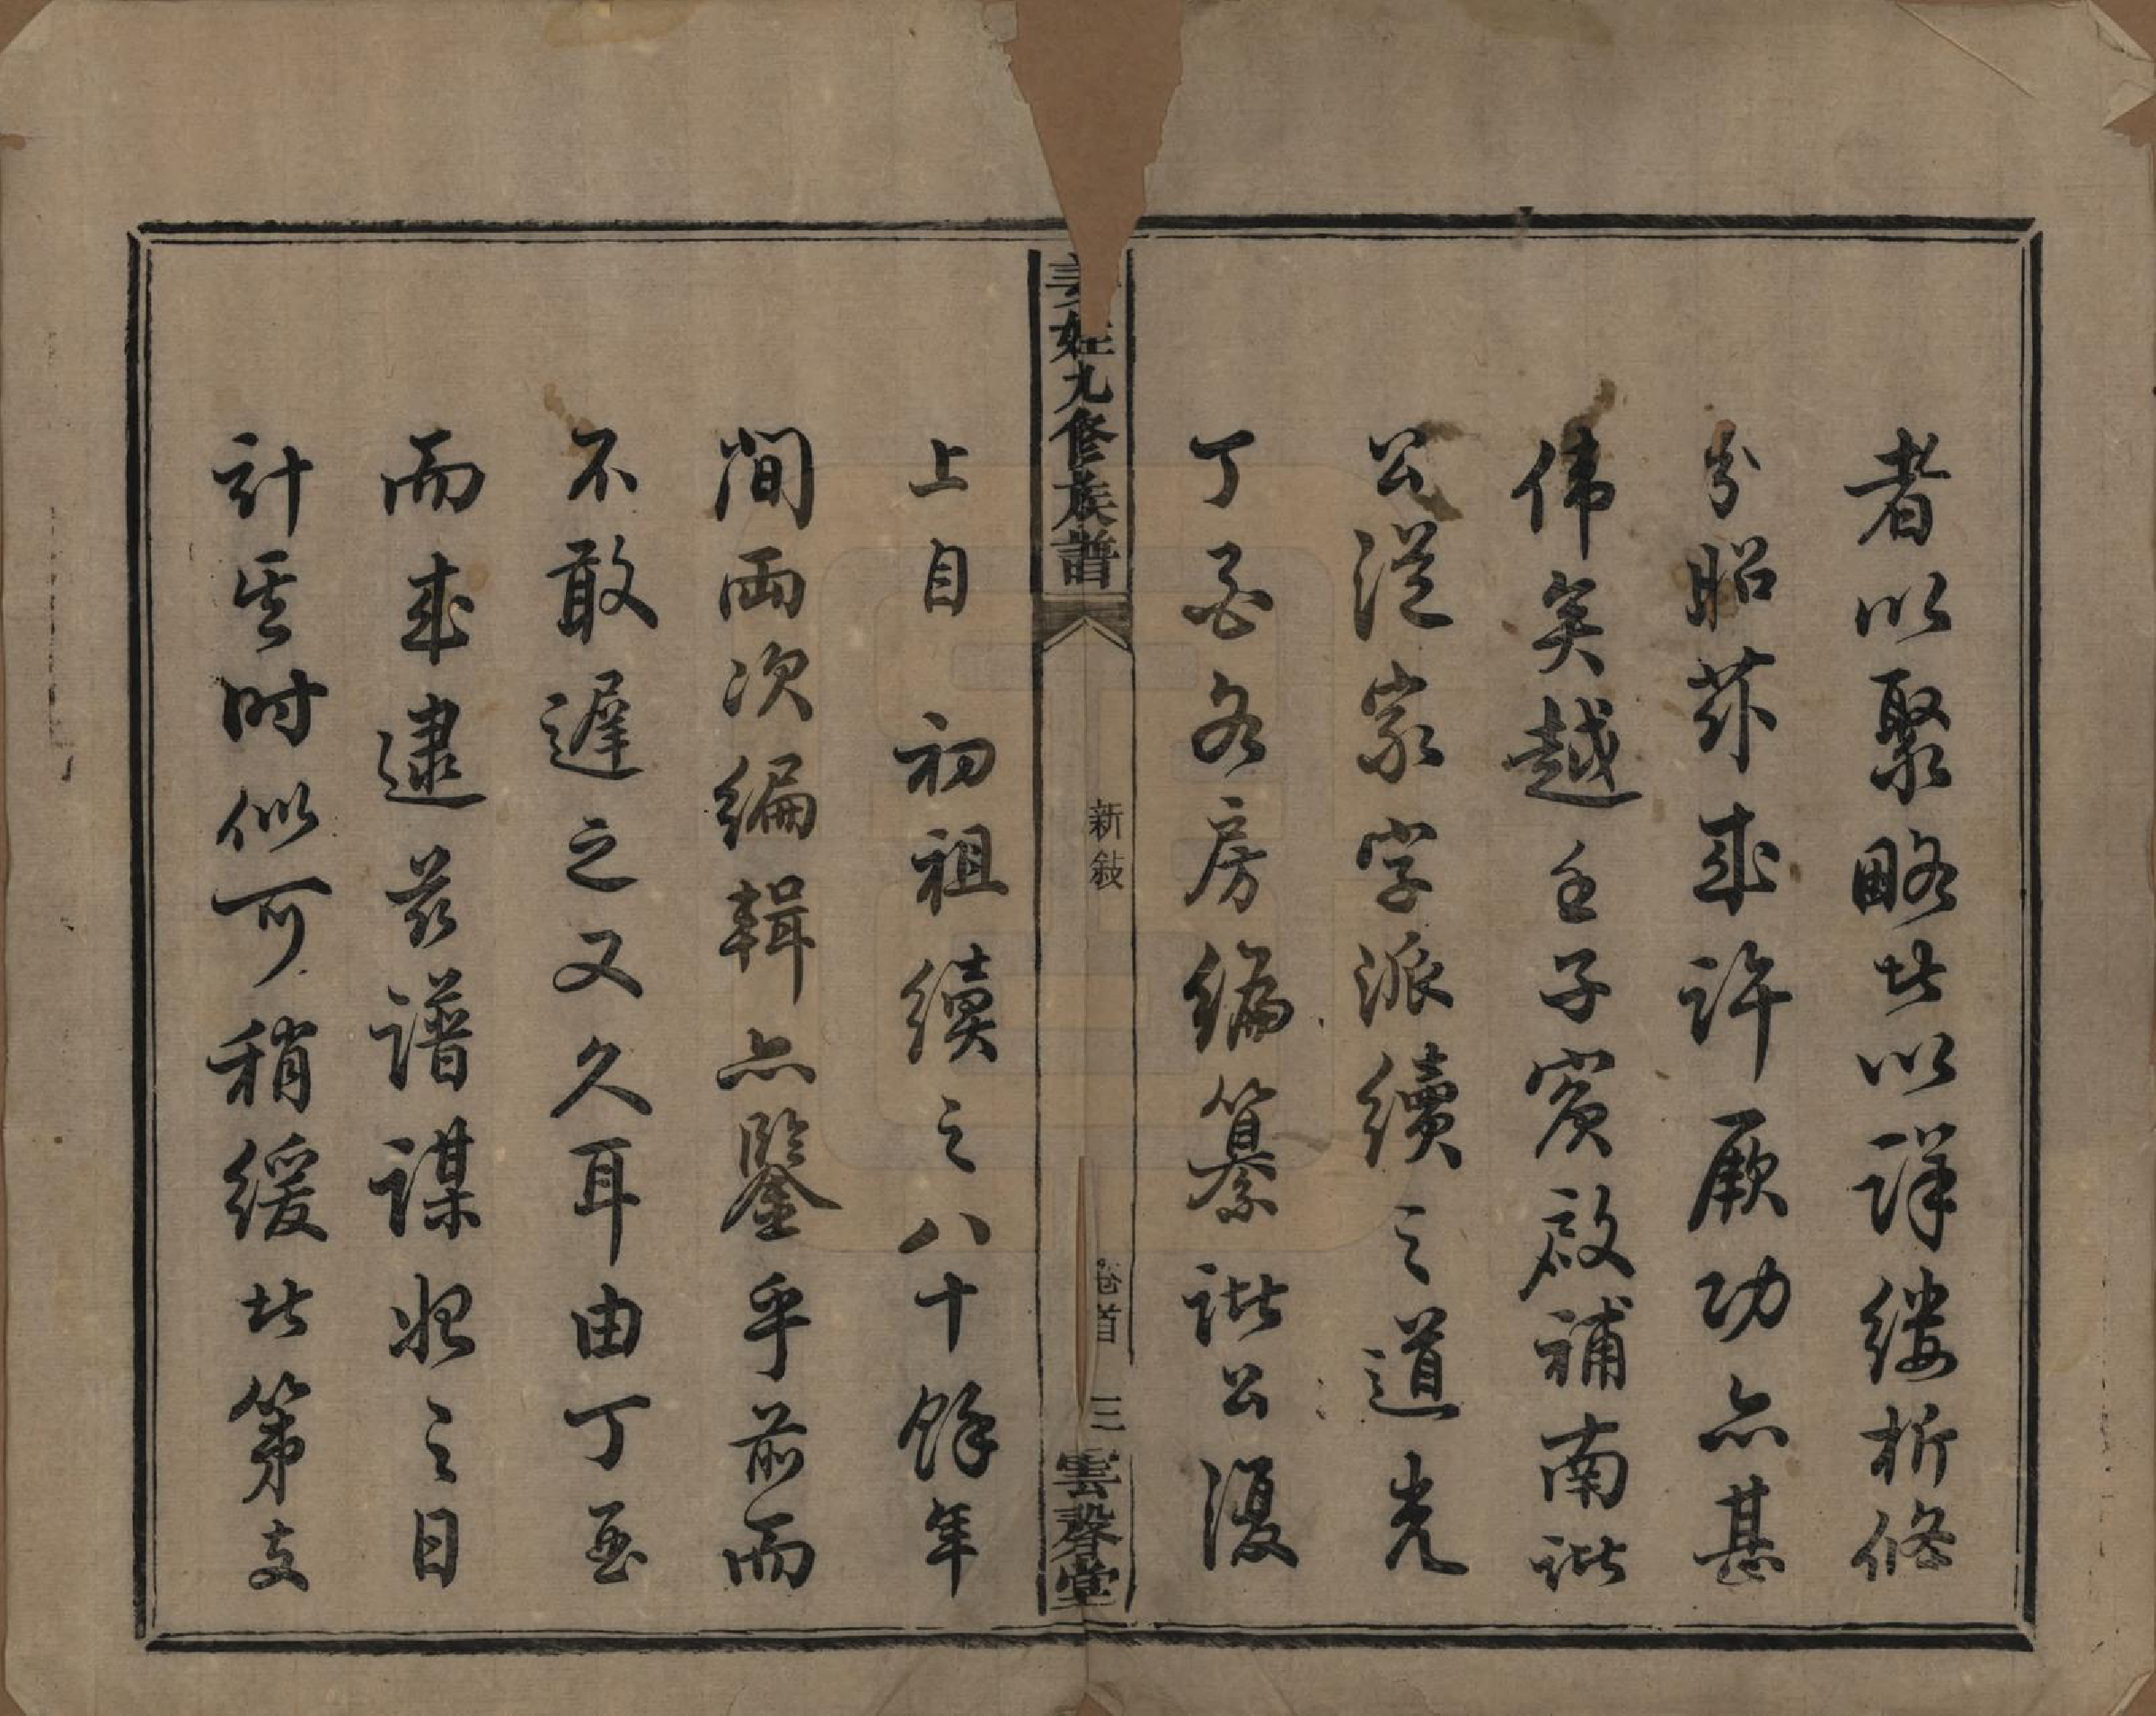 者以聚略者以詳縷析條
分昭茲來許厥功亦甚
偉矣越壬子賓啟補南諸
公從家字派續之道光
丁酉各房編纂諸公復
姜姓九修族譜
新敍
卷首
三
雲磬堂
上自 初祖續之八十餘年
間兩次編輯亦鑒乎前而
不敢遲之又久耳由丁酉
而來逮茲譜謀妝之日
計其時似可稍緩者第支